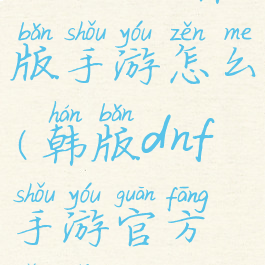 bǎn shǒu yóu zěn me
版手游怎么
hán bǎn
(韩版dnf
shǒu yóu guān fāng
手游官方